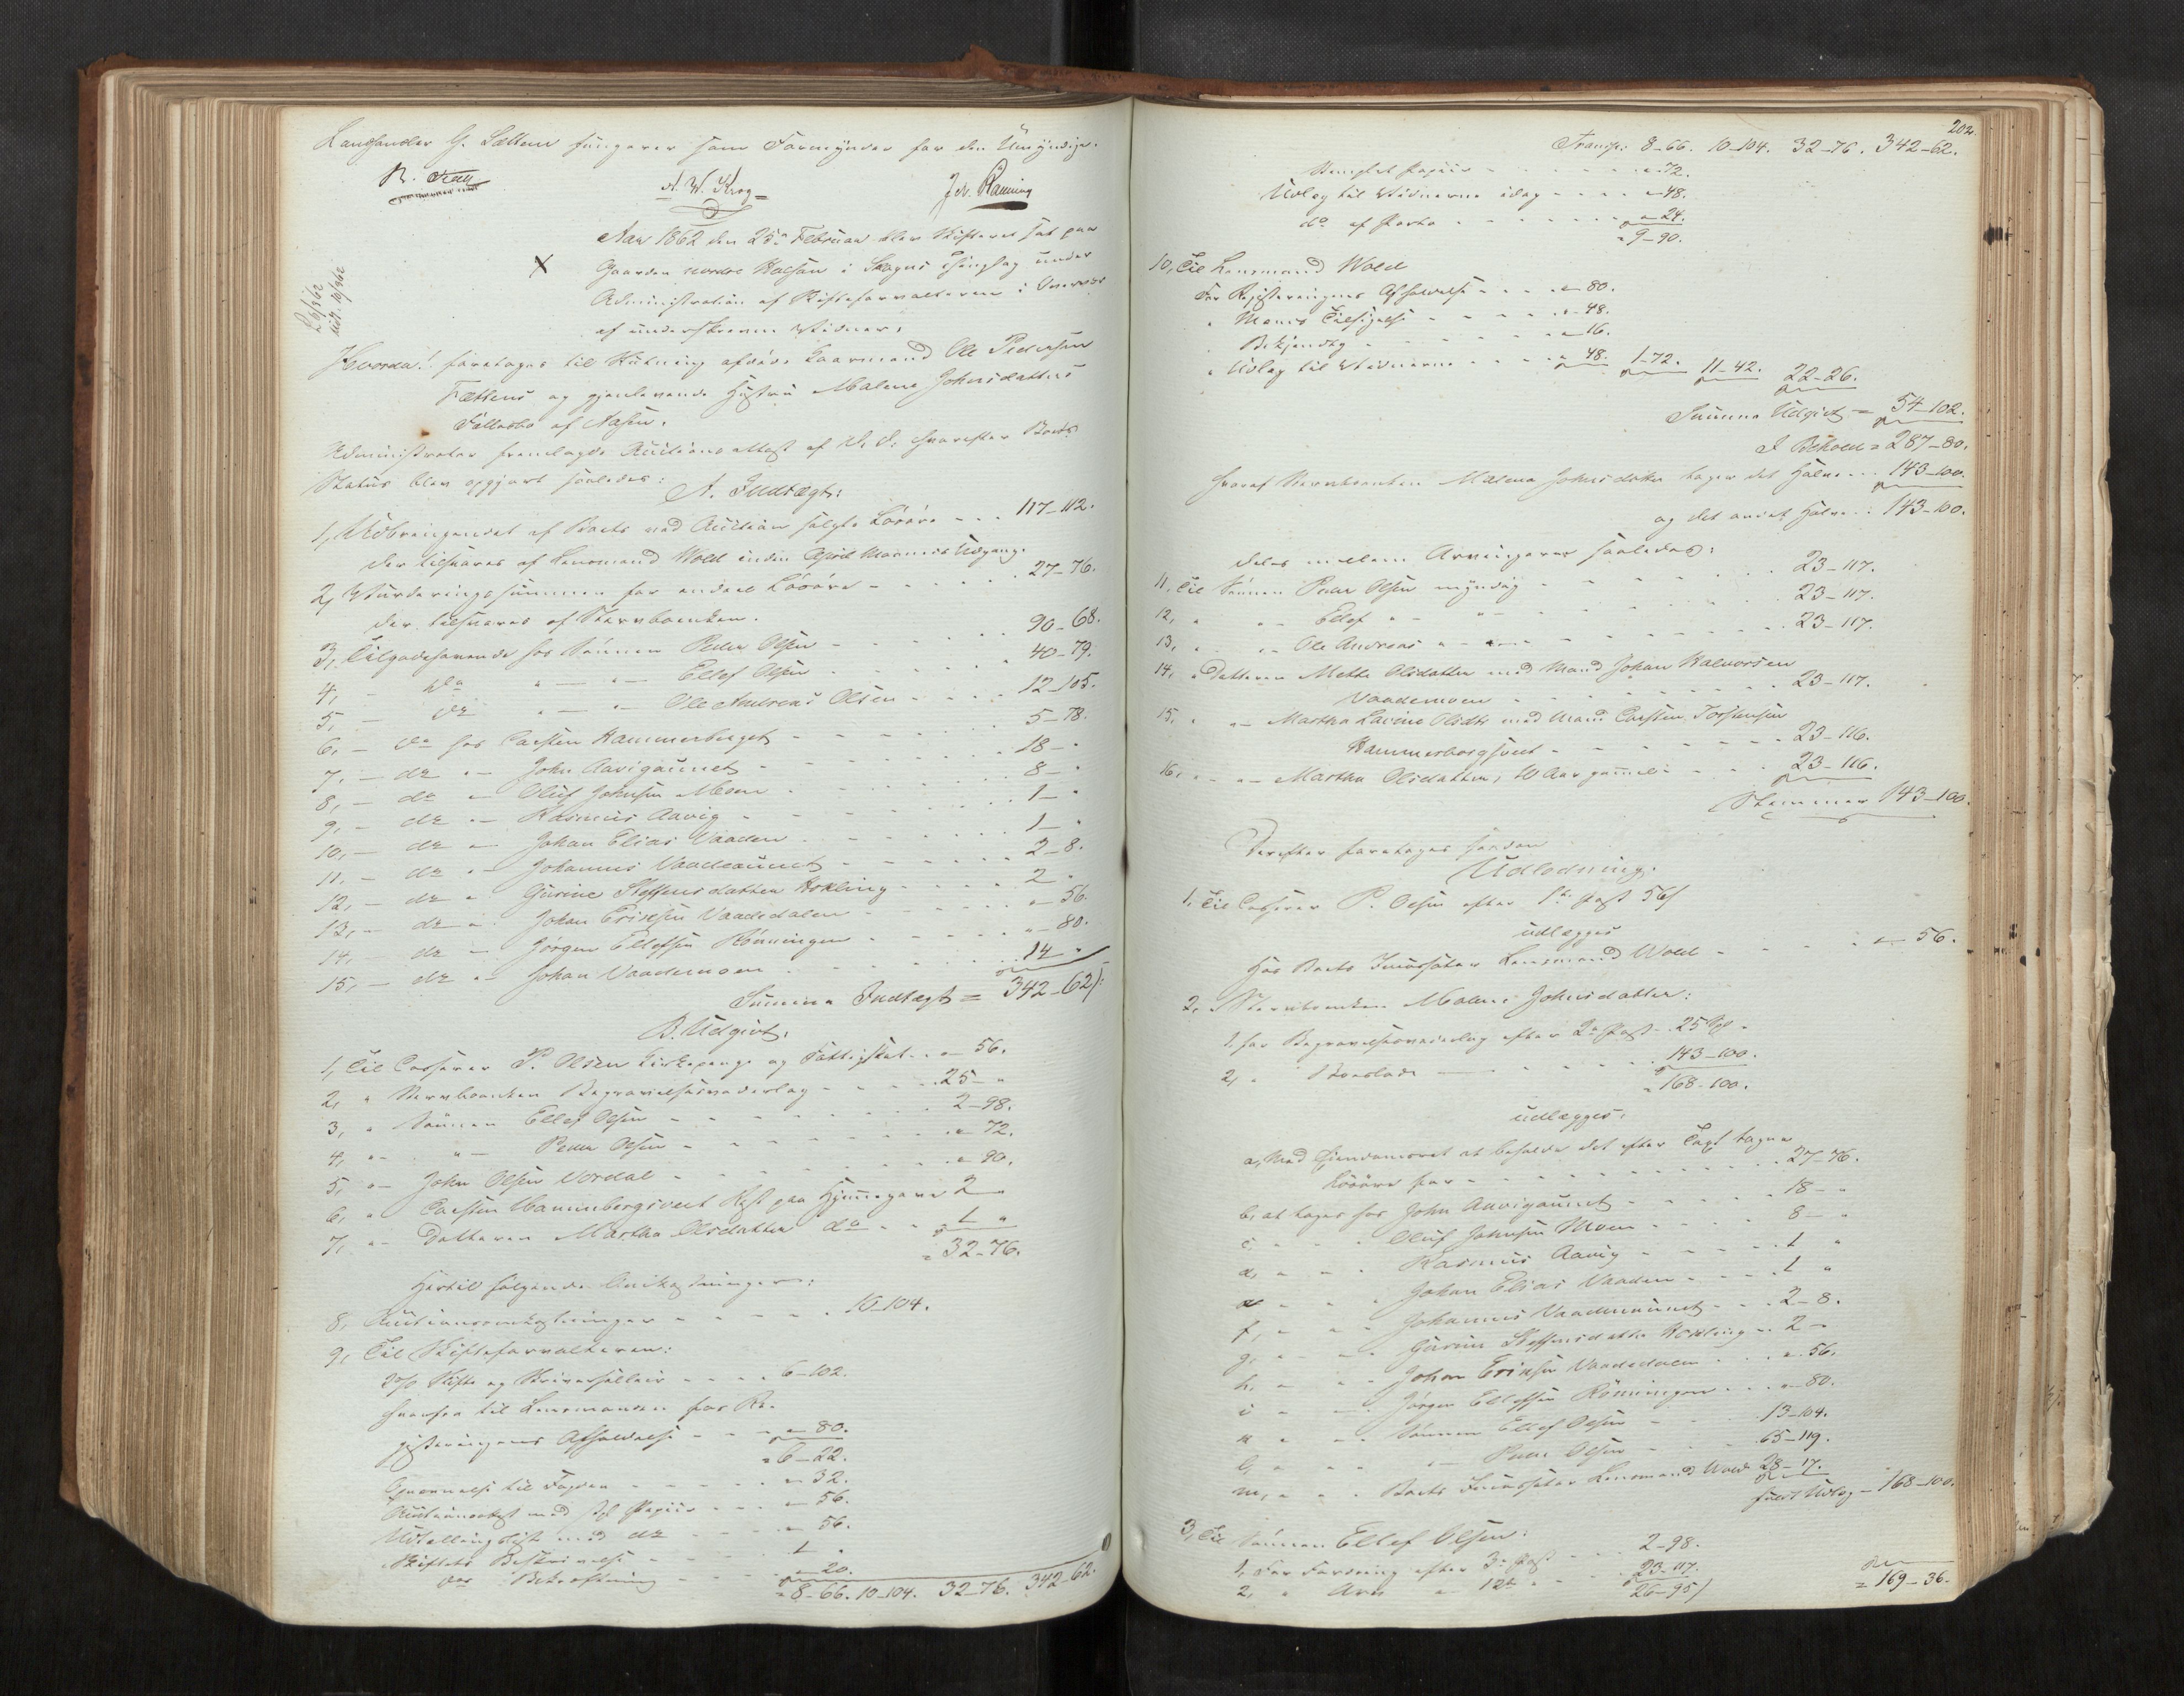 Langhander G. Salthen fungerer som Formynder for den Umyndige.
A. W. Krog
Joh. Ranning
Aar 1862 den 25de Februar blev Skifteret sat paa
Gaarden nordre Halsan i Skogns Thinglag under
Administration af Skifteforvalteren i Overvær
af underskrevne Vidner.
Hvorda! foretoges til Slutning afdøde Gaarmand Ole Pedersen
Fættens og gjenlevende Hustru Malene Johnsdatters
Fællesbo af Aasen.
Administrator fremlagde Auctionsattest af d. D. hvorefter Boets
Status blev opgjort saaledes:
A. Indtægt:
1, Udbringendet af Boets ved Auction solgte Løsøre - - - 117-112.
der tilsvares af Lensmand Wold inden April Maaneds Udgang.
2, Vurderingssummen for endeel Løsøre - - - 27-76.
der tilsvares af Stervboenken.
3, Tilgodehavende hos Sønnen Peder Olsen - - - 90-68.
4, - do " - " - Ellef Olsen - - - 40-79.
5, - do " - " - Ole Andreas Olsen - - - 12-105.
6, - do hos Carsten Hammerberget - - - 5-78.
7, - do " - John Aavigaunet - - - 18-"
8, - do " - Oluf Johnsen Moen - - - 8-"
9, - do " - Rasmus Aavig - - - 1-"
10, - do " - Johan Elias Vaaden - - - 1-"
11, - do " - Johannes Vaadeaunet - - - 2-8.
12, - do " Gurine Steffensdatter Hokling - - - 2 "
13, - do " Johan Eriksen Vaadedalen - - - "-56.
14, do - Jørgen Ellefsen Rønningen - - - "-80.
15, - do " - Johan Vaademoen - - - 14 "
Summa Indtægt = 342-62
B. Udgivt.
1, Til Casserer P. Olsen Kirkepenge og Fattigskat - "-56.
2, " Stervboenken Begravelsesvederlag - - - 25-"
3, " Sønnen Ellef Olsen - - - 2-98.
4, " - " - Peder Olsen - - - "-72.
5, " - John Olsen Vordal - - - "-90.
6, " Carsten Hammerbergsveet Rest paa Hjemmegave 2 "
7, " - Datteren Martha Olsdatter do - - 1 "
= 32-76.
Hertil følgende Omkostninger:
8, Auctionsomkostninger - - - 10-104.
9, Til Skifteforvalteren:
2% Skifte og Skriversallair - - - 6-102.
hvorfra til Lensmanden for Re-
gistreringens Afholdelse - - - "-80.
"6-22.
Opnevnelse til Fogden - - - "-32.
Auctionsattest med st. Papiir - - - "-56.
Udstillingslist med do - - - "-56.
Skiftets Beskrivelse - - - 1 "
des Bekræftning - - - "-20.
= 8-66. 10-104. 32-76. 342-62.
202.
Transp: 8-66. 10-104. 32-76. 342-62.
Stemplet Papiir - - - "-72.
Udlæg til Vidnerne idag - - - "-48.
do af Porto - - - "-24.
"9-90.
10, Til Lensmand Wold
For Registreringens Afholdelse - - - "-80.
" Mands Tilsigelse - - - "-48.
" Bekjendtg - - - "-16.
" Udlæg til Vidnerne - - - "-48. 1-72. 11-42. 22-26.
Summa Udgivt = 54-102.
I Behold = 287-80.
hvoraf Stervboenken Malena Johnsdatter tager det Halve - - 143-100.
og det andet Halve - 143-100.
deles mellem Arvingerne saaledes:
11, Til Sønnen Peder Olsen myndig - - - 23-117.
12, " " - Ellef " - " - - - - 23-117.
13, " " - Ole Andreas " - " - - - 23-117.
14, " Datteren Mette Olsdatter med Mand Johan Halvorsen
Vaademoen - - - 23-117.
15, " " - Martha Lavine Olsdtr med Mand Carsten Torstensen
Hammerbergsveet - - - 23-116.
16, " " - Martha Olsdatter, 10 Aar gammel - - - 23-116.
Stemmer 143-100.
Derefter foretages saadan
Udlodning:
1, Til Casserer P. Olsen efter 1ste Post 56 s
udlægges
Hos Boets Incassator Lensmand Wold - - - "-56.
2, Stervboenken Malene Johnsdatter:
1, for Begravelsesvederlag efter 2den Post - 25 Spd -
2, " Boeslod - - - 143-100.
"168-100.
udlægges:
a, Med Eiendomsret at beholde det efter Taxt tagne
Løsøre for - - - 27-76.
b, at tages hos John Aavigaunet - - - 18-"
c, " " - Oluf Johnsen Moen - - - 8-"
d, " " - Rasmus Aavig - - - 1 "
e " " - Johan Elias Vaaden - - - 1 "
f, " " - Johannes Vaadeaunet - - - 2-8.
g, " " - Gurine Steffensdatter Hokling - - 2-"
h, " " - Johan Eriksen Vaadedalen - - - "-56.
i " " - Jørgen Ellefsen Rønningen - - - "-80.
k " " - Sønnen Ellef Olsen - - - 13-104.
l, " " - " - Peder Olsen - - - 65-119.
m, " " - Boets Incassator Lensmand Wold 28-17.
fuldt Udlæg - 168-100.
3, Til Sønnen Ellef Olsen:
1, For Fordring efter 3die Post - - 2-98.
2, " Arv " 12te " - - 23-117.
26-95
= 169-36.